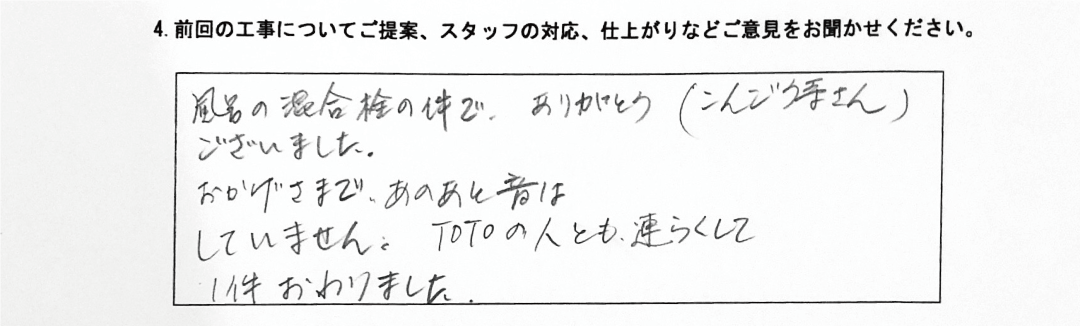 4. 前回の工事についてご提案、スタッフの対応、仕上がりなどご意見をお聞かせください。
風呂の混合栓の件で、ありがとう (こんごう手さん)
ございました。
おかげさまで、あのあと音は
していません。 TOTOの人とも、連らくして
1件おわりました。